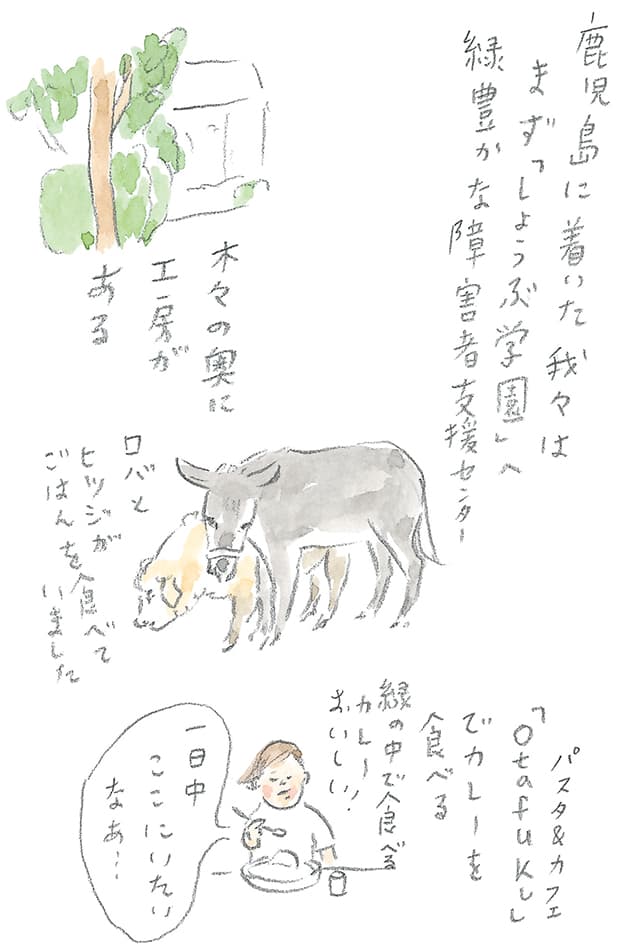 鹿児島に着いた我々は
まず「しょうぶ学園」へ
緑豊かな障害者支援センター
木々の奥に
工房が
ある
ロバと
ヒツジが
ごはんを食べて
いました
パスタ&カフェ
「Otafuku」
でカレーを
食べる
緑の中で食べる
カレー!
おいしい!
一日中
ここにいたい
なぁ…